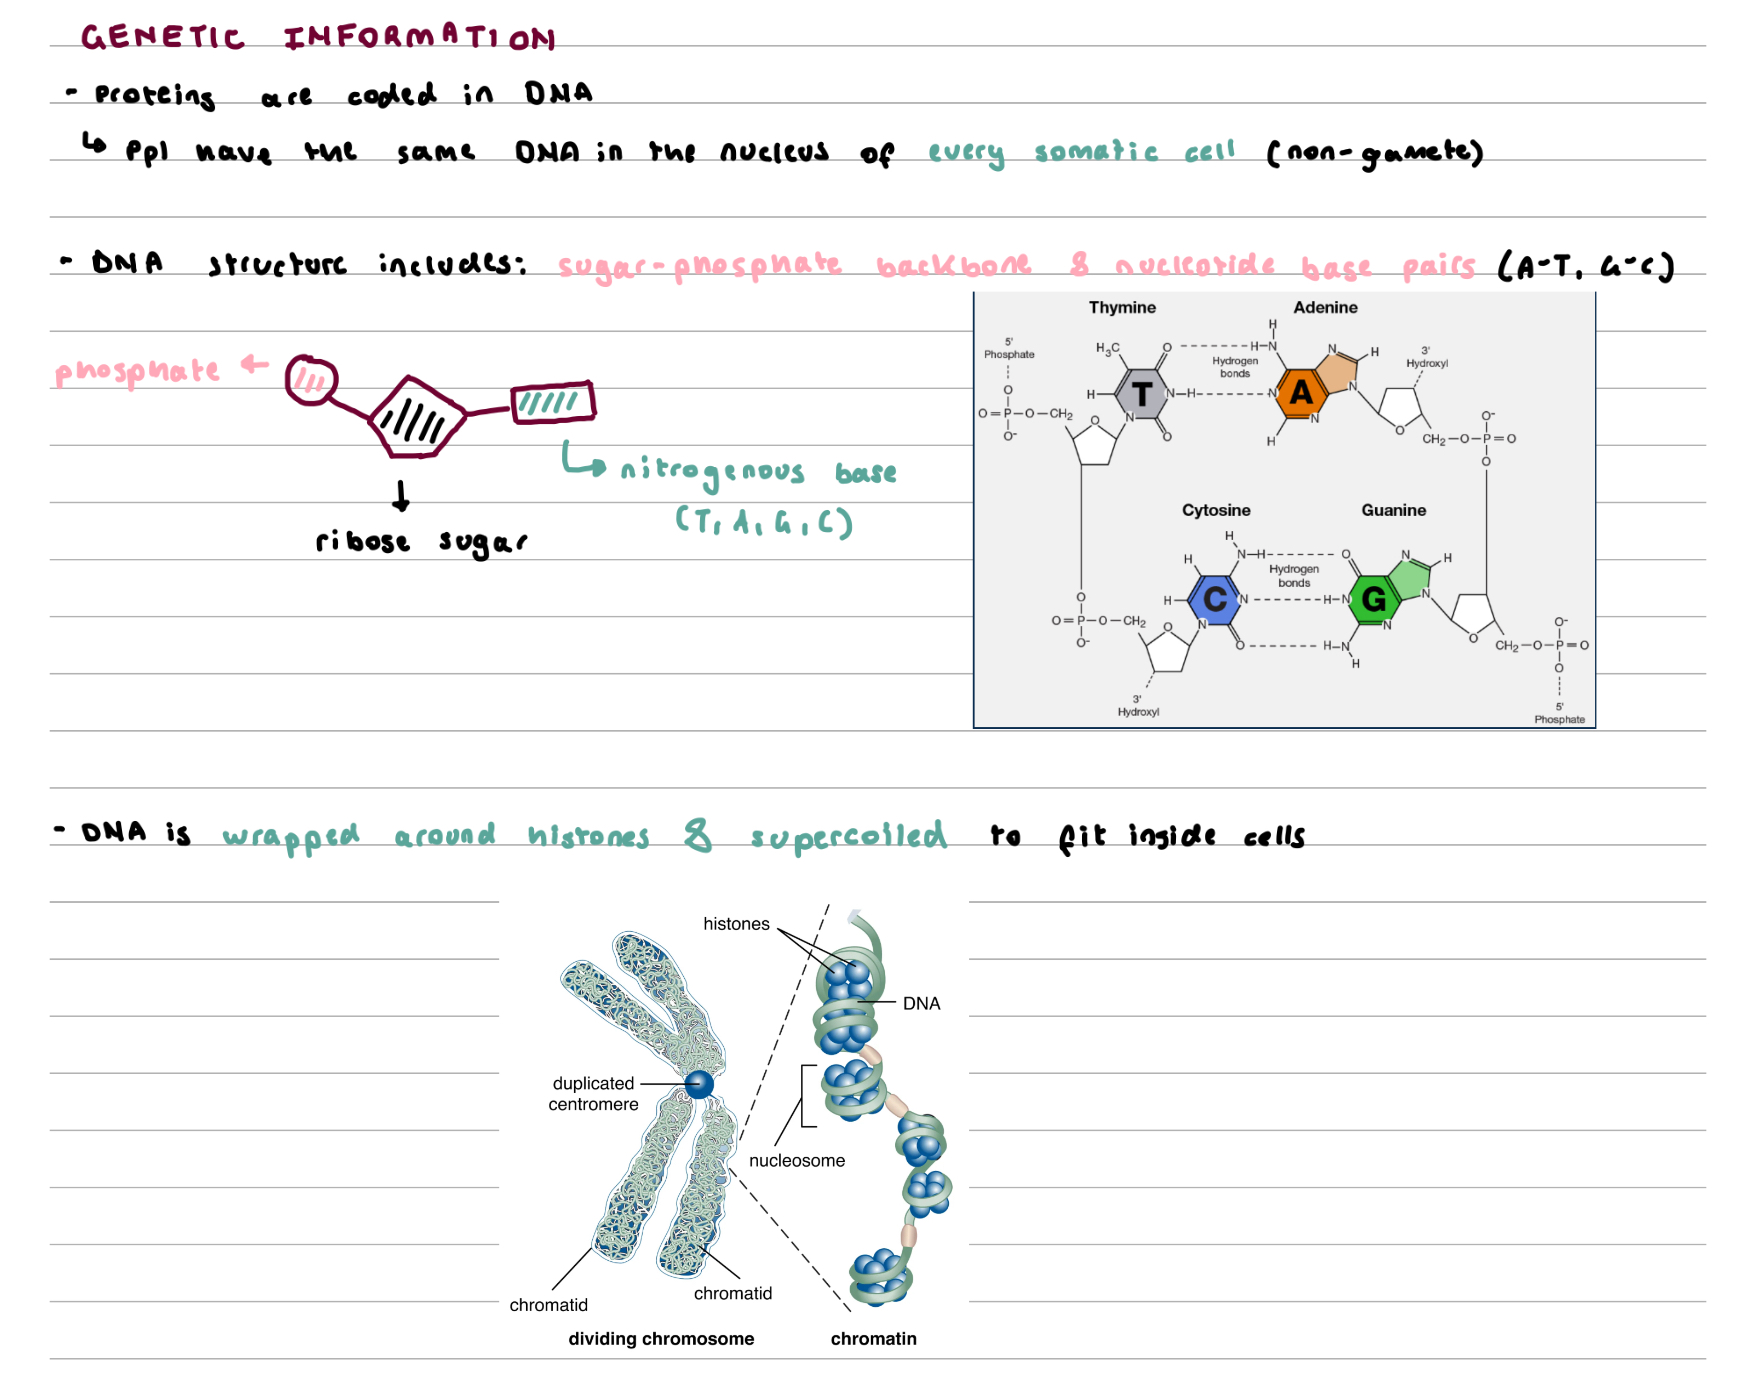 GENETIC INFORMATION
- proteins are coded in DNA
↳ ppl have the same DNA in the nucleus of every somatic cell (non-gamete)
- DNA structure includes: sugar-phosphate backbone & nucleotide base pairs (A-T, G-C)
phosphate ←
ribose sugar
nitrogenous base
(T, A, G, C)
Thymine
Adenine
5'
Phosphate
O
O=P-O-CH₂
O⁻
H₃C
O
H
T
N-H
N
O
O
Hydrogen
bonds
H
H-N
N
A
N
H
N
H
N
3'
Hydroxyl
O
CH₂-O-P=O
O⁻
O
Cytosine
Guanine
O
O=P-O-CH₂
O⁻
O
H
N-H
H
H
C
N
N
O
Hydrogen
bonds
O
N
H
H-N
G
N
N
H-N
H
O
CH₂-O-P=O
O⁻
O
3'
Hydroxyl
5'
Phosphate
- DNA is wrapped around histones & supercoiled to fit inside cells
histones
DNA
duplicated
centromere
nucleosome
chromatid
chromatid
dividing chromosome
chromatin